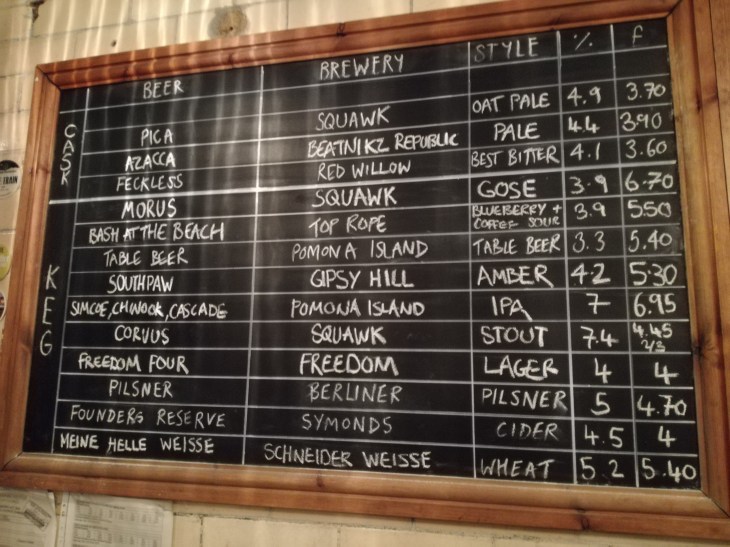 BEER BREWERY STYLE % £
CASK
PICA SQUAWK OAT PALE 4.9 3.70
AZACCA BEATNIKZ REPUBLIC PALE 4.4 3.90
FECKLESS RED WILLOW BEST BITTER 4.1 3.60
KEG
MORUS SQUAWK GOSE 3.9 6.70
BASH AT THE BEACH TOP ROPE BLUEBERRY + COFFEE SOUR 3.9 5.50
TABLE BEER POMONA ISLAND TABLE BEER 3.3 5.40
SOUTHPAW GIPSY HILL AMBER 4.2 5.30
SIMCOE, CHINOOK, CASCADE POMONA ISLAND IPA 7 6.95
CORVUS SQUAWK STOUT 7.4 4.45 2/3
FREEDOM FOUR FREEDOM LAGER 4 4
PILSNER BERLINER PILSNER 5 4.70
FOUNDERS RESERVE SYMONDS CIDER 4.5 4
MEINE HELLE WEISSE SCHNEIDER WEISSE WHEAT 5.2 5.40